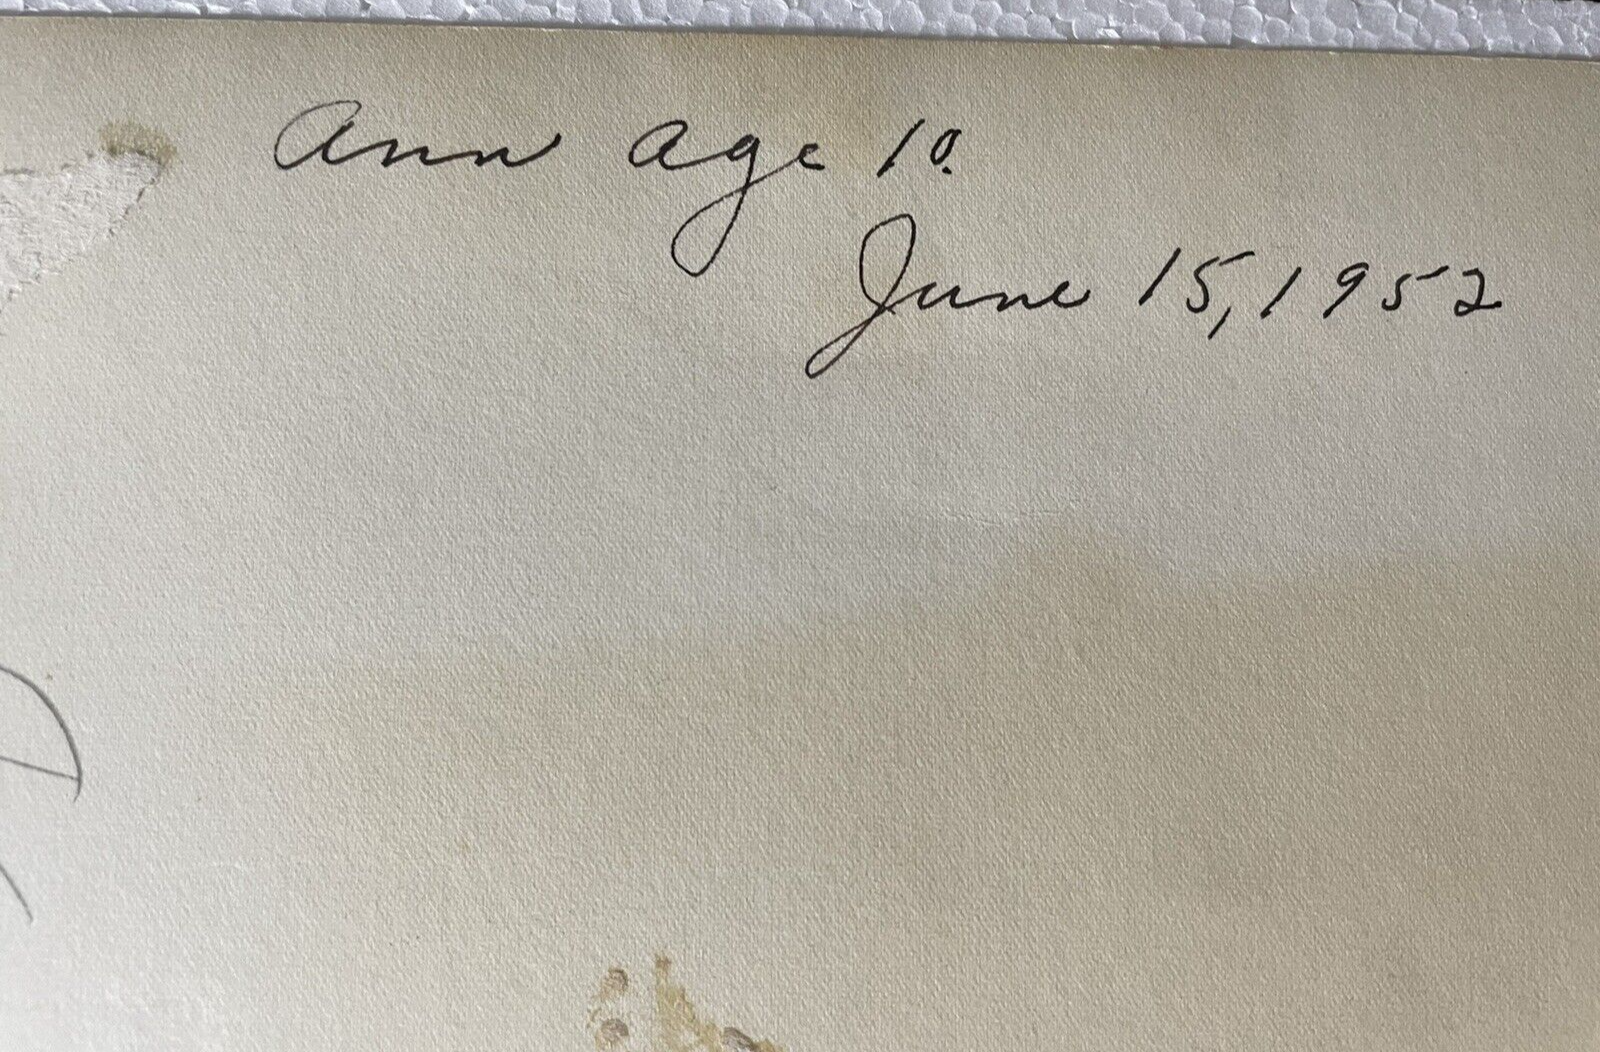 Ann age 10.
June 15, 1952